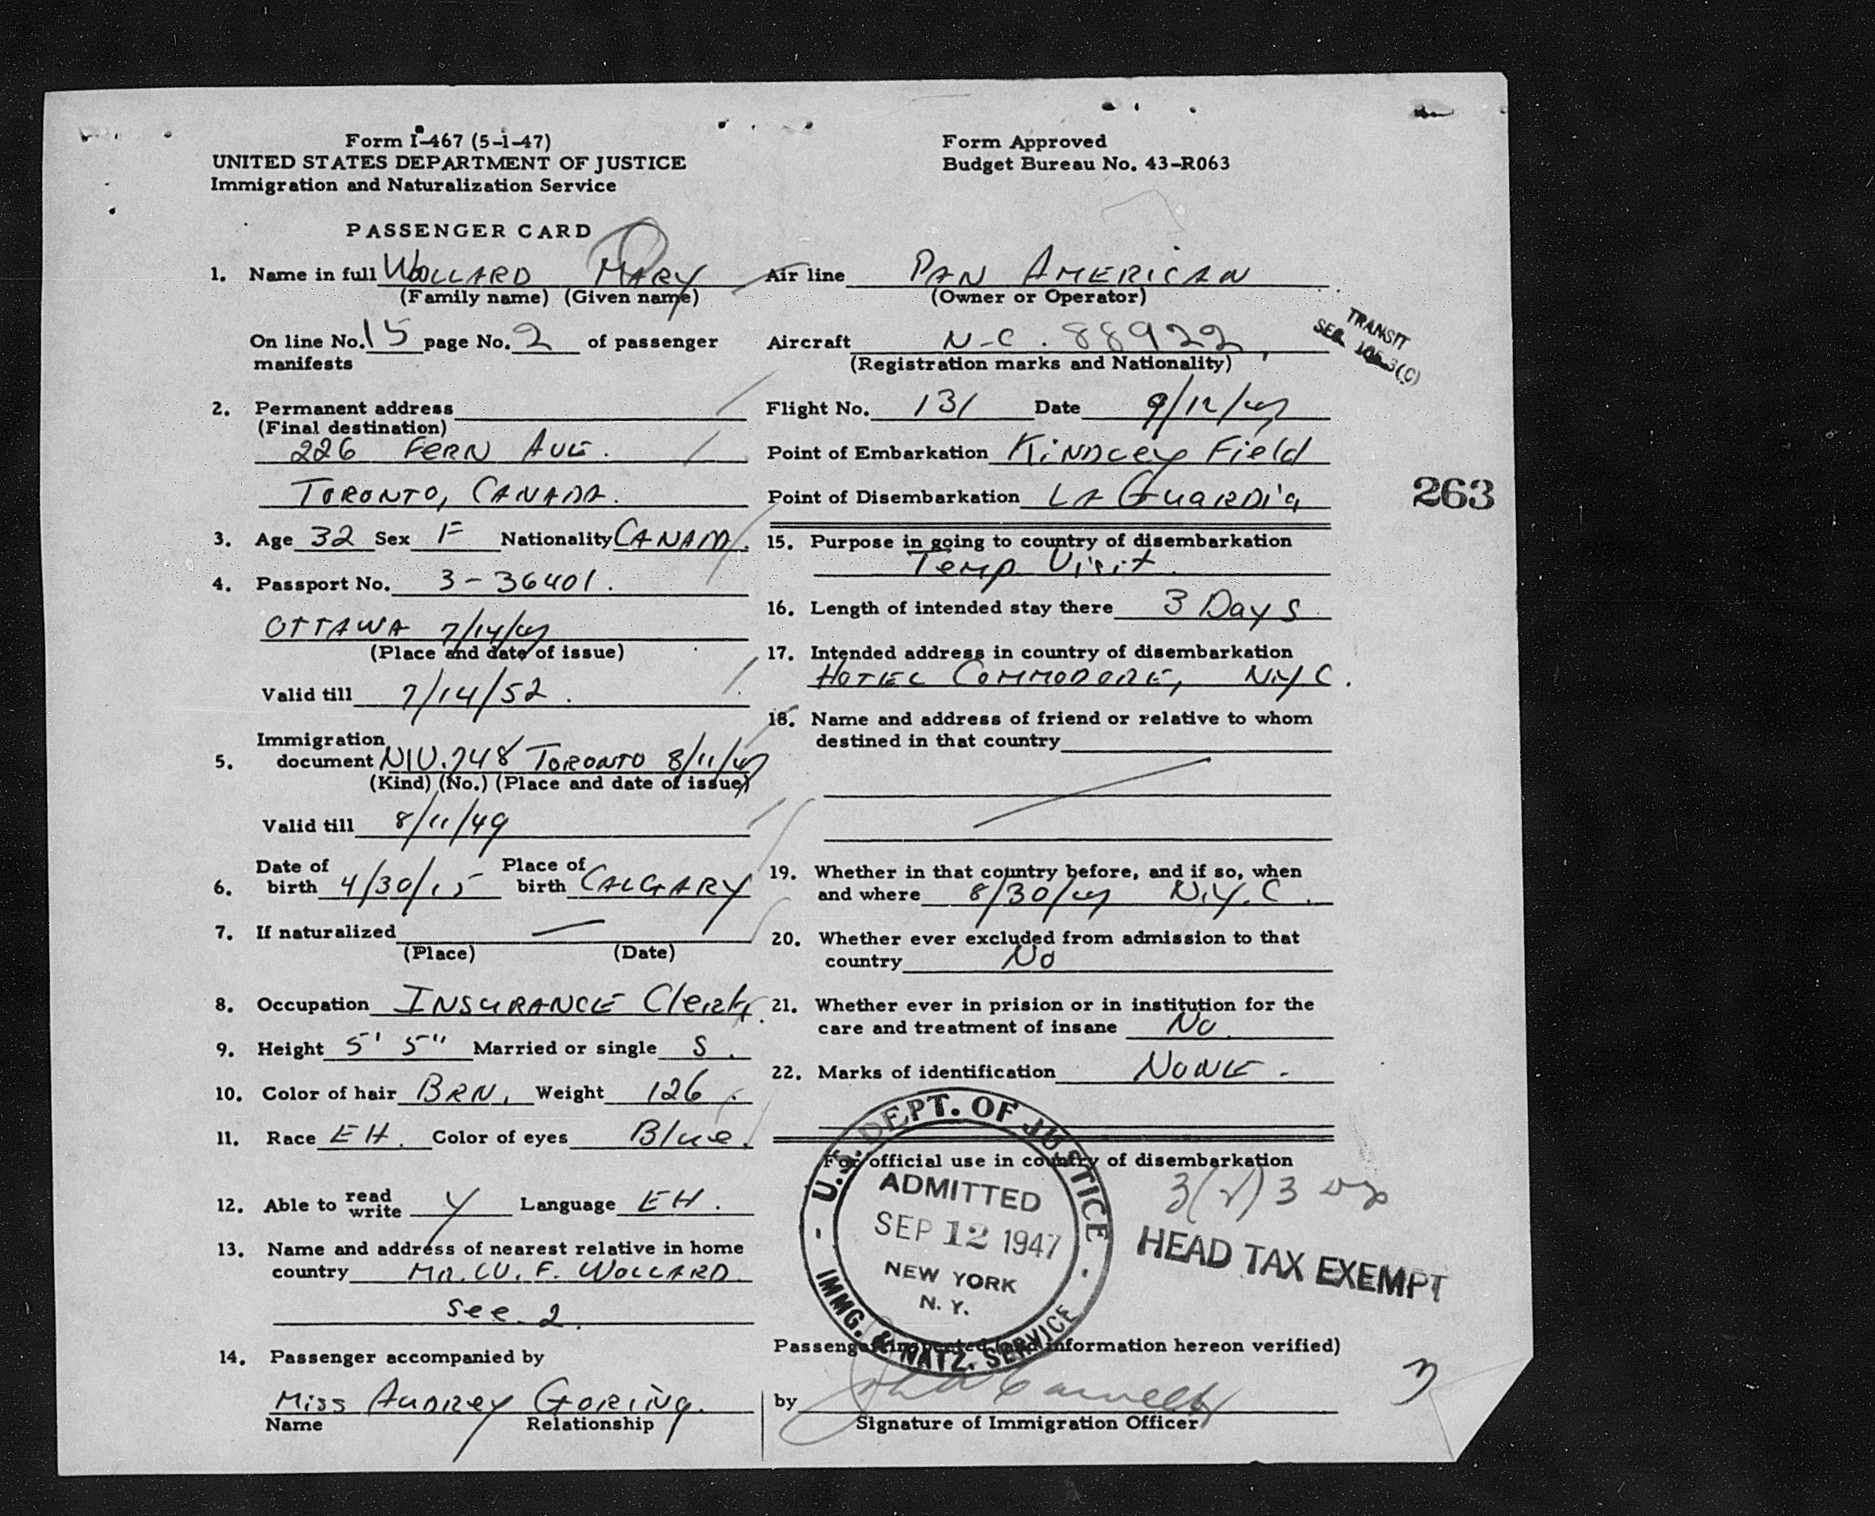 Form I-467 (5-1-47)
UNITED STATES DEPARTMENT OF JUSTICE
Immigration and Naturalization Service
Form Approved
Budget Bureau No. 43-R063
PASSENGER CARD
1. Name in full WOLLARD MARY
(Family name) (Given name)
On line No. 15 page No. 2 of passenger
manifests
2. Permanent address
(Final destination)
226 FERN AVE.
TORONTO, CANADA.
3. Age 32 Sex F Nationality CANAD.
4. Passport No. 3-36401.
OTTAWA 7/14/47
(Place and date of issue)
Valid till 7/14/52.
Immigration
5. document NIV.748 TORONTO 8/11/47
(Kind) (No.) (Place and date of issue)
Valid till 8/11/49
Date of Place of
6. birth 4/30/15 birth CALGARY
7. If naturalized —
(Place) (Date)
8. Occupation INSURANCE Clerk.
9. Height 5' 5" Married or single S.
10. Color of hair BRN. Weight 126.
11. Race EH. Color of eyes Blue.
12. Able to read write Y Language EH.
13. Name and address of nearest relative in home
country MR. W. F. WOLLARD
see 2.
14. Passenger accompanied by
Miss AUDREY GORING.
Name Relationship
Air line PAN AMERICAN
(Owner or Operator)
Aircraft N-C. 88922,
(Registration marks and Nationality)
TRANSIT
SEC.
Flight No. 131 Date 9/12/47
Point of Embarkation KINDLEY Field
Point of Disembarkation LA GUARDIA
263
15. Purpose in going to country of disembarkation
Temp Visit.
16. Length of intended stay there 3 Days
17. Intended address in country of disembarkation
HOTEL COMMODORE, N.Y.C.
18. Name and address of friend or relative to whom
destined in that country
19. Whether in that country before, and if so, when
and where 8/30/47 N.Y.C.
20. Whether ever excluded from admission to that
country No
21. Whether ever in prision or in institution for the
care and treatment of insane No.
22. Marks of identification NONE.
For official use in country of disembarkation
U.S. DEPT. OF JUSTICE
ADMITTED
SEP 12 1947
NEW YORK
N. Y.
IMMG. & NATZ. SERVICE
HEAD TAX EXEMPT
Passenger inspected (and information hereon verified)
by
Signature of Immigration Officer